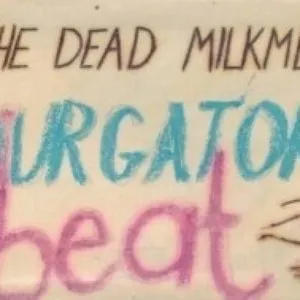 THE DEAD MILKME
PURGATOR
beat